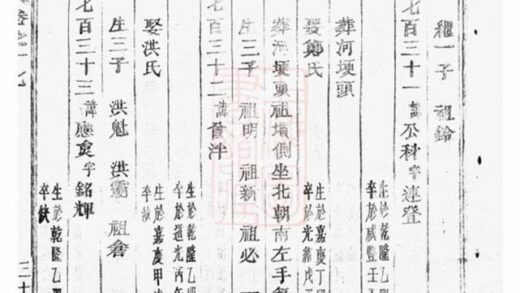 繼一子 祖鈴
七百三十一 諱公科 字連登
生於乾隆乙
卒於咸豐壬
葬河埂頭
娶鄭氏
生於嘉慶丁
卒於光緒戊
葬河埂頭祖墳側坐北朝南左手
生三子 祖明 祖新 祖必
七百三十二 諱晉泮
生於乾隆乙
卒於道光丙午
娶洪氏
生於嘉慶甲
生三子 洪魁 洪霸 祖倉
七百三十三 諱應 字銘輝
生於乾隆乙
卒缺
二十